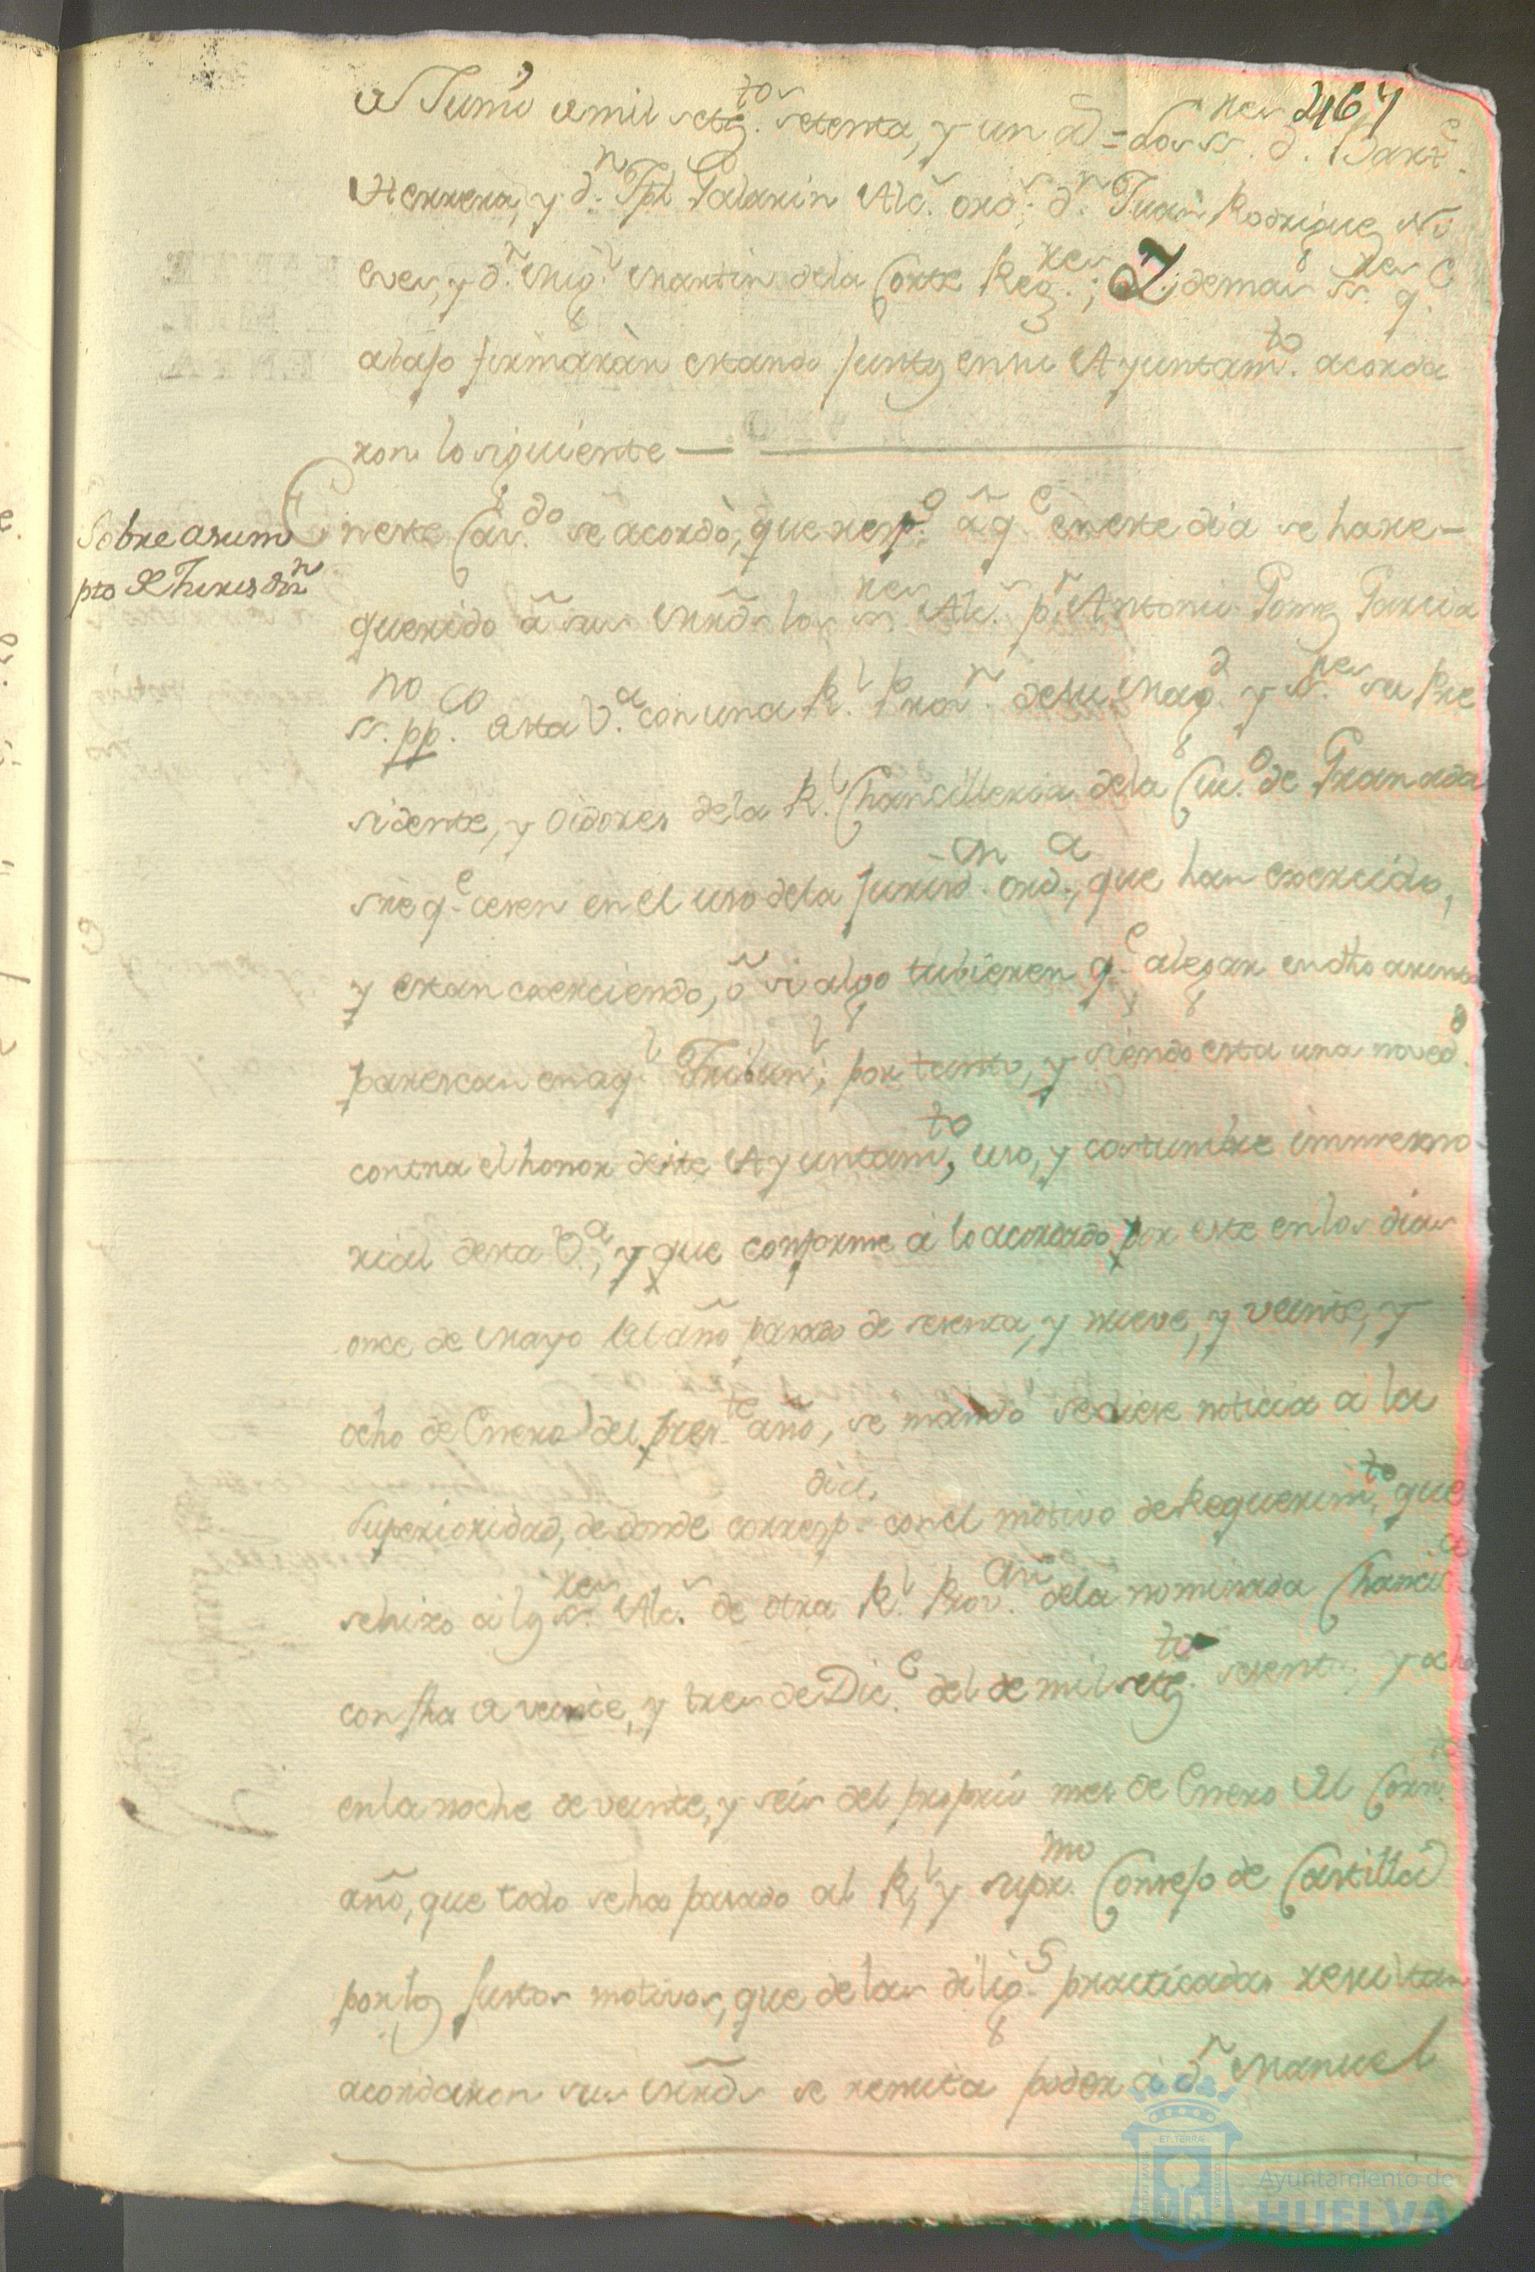 467
de Junio de mil setez.tos setenta, y un a.s = Los ss.res d. Bart.e
Herrera, y d.n Jph Galarin Alc.s ord.s d.n Juan Rodriguez Ni
eves, y d.n Mig.l Martin de la Corte Reg.res; demas ss.res q.e
abajo firmaràn estando juntos en su Ayuntam.to acorda
ron lo siguiente
Sobre asum
pto de Jurisd.n
En este Cav.do se acordò, que resp.o a q.e en este dia se ha re-
querido à sus mrds los ss.res Alc.s p.r Antonio Gomez Garcia
ss.no pp.co de esta V.a con una R.l Prov.n de su Mag.d y ss.res su Pre
sidente, y oidores de la R.l Chancilleria de la Ciu.d de Granada
sre q.e cesen en el uso de la jurisd.on ord.a, que han exercido,
y estan exerciendo, ò si algo tubieren q.e alegar en dho asunto
parescan en aq.l Tribun.l; por tanto, y siendo esta una noved.d
contra el honor deste Ayuntam.to, uso, y costumbre inmemo
rial desta V.a, y que conforme a lo acordado por este en los dias
once de Mayo del año pasado de sesenta, y nueve, y veinte, y
ocho de Enero del pres.te año, se mandò se diese noticia a la
Superioridad, de donde corresp.dia con el motivo de Requerim.to, que
se hizo a los ss.res Alc.s de otra R.l Prov.on de la nominada Chanci.a
con fha de veinte, y tres de Dic.e del de mil setez.tos sesenta, y ocho
en la noche de veinte, y seis del proprio mes de Enero del Corr.te
año, que todo se ha pasado al R.l, y supr.mo Consejo de Castilla
por los justos motivos, que de las dilig.s practicadas resultan
acordaron sus mrds se remita poder à d.n Manuel
Ayuntamiento de
HUELVA